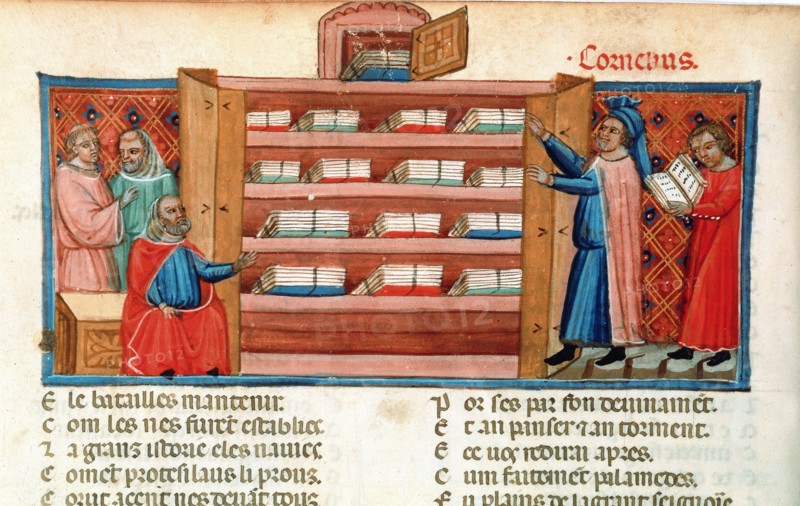 ·Cornelius.
E le batailles mantenir.
C om les nes furent establies
Z a granz istorie e les navies.
C omet protesilaus li prouz.
C orut a cent nes devant touz
P or ses par son devinamēt.
E t an panser ⁊ an torment.
E ce uoz redirai apres.
C um faitemēt palamedes.
F u plains de la grant seignorie
PHOTO12